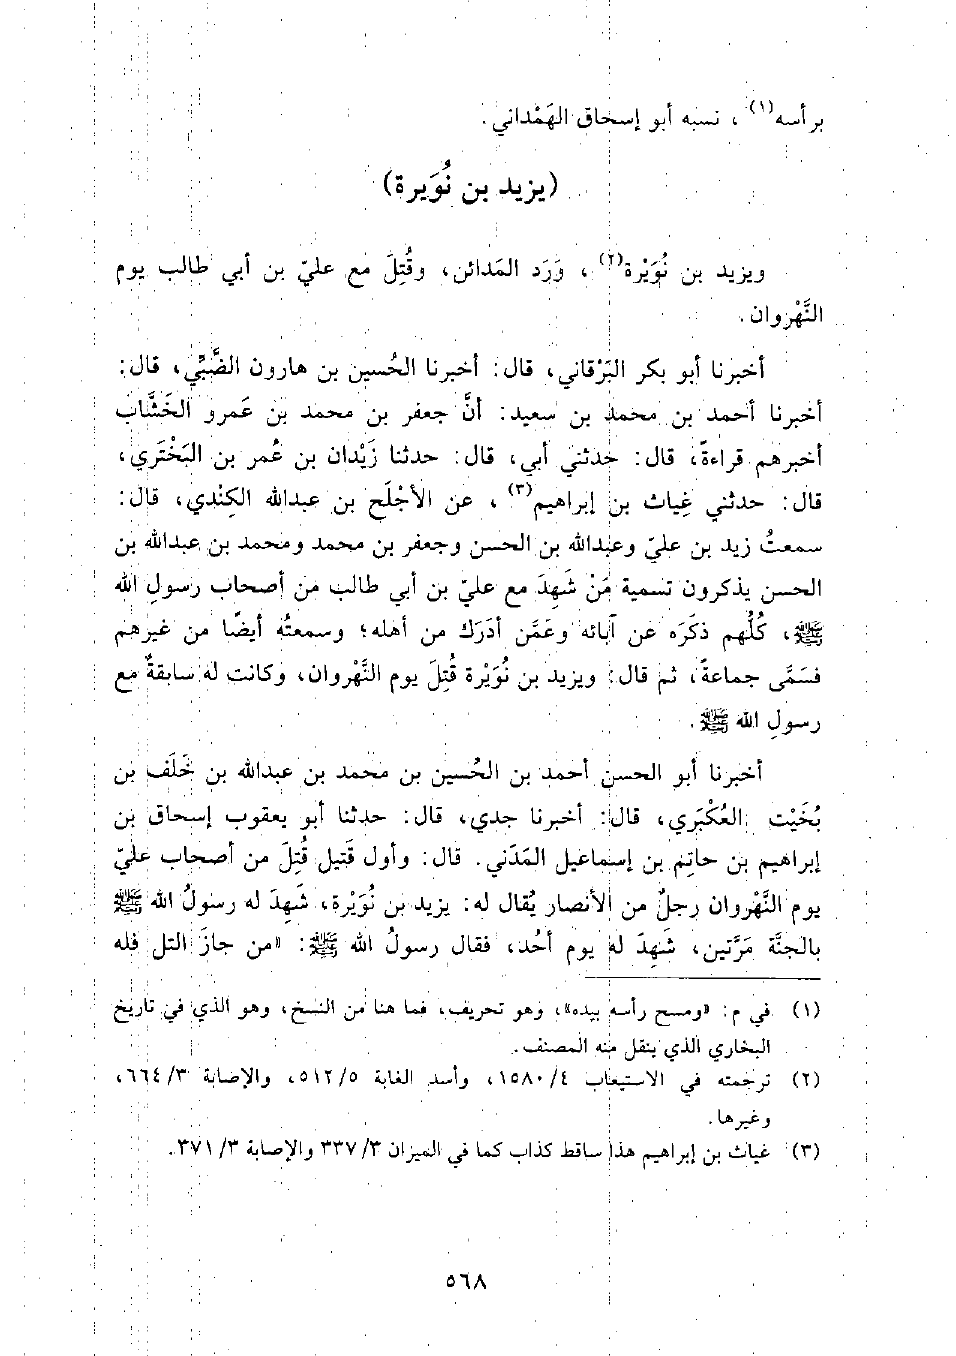 برأسه(١)، نسبه أبو إسحاق الهَمْداني.
(يزيد بن نُوَيرة)
ويزيد بن نُوَيْرة(٢)، وَرَد المَدائن، وقُتِلَ مع عليّ بن أبي طالب يوم
النَّهْروان.
أخبرنا أبو بكر البَرْقاني، قال: أخبرنا الحُسين بن هارون الضَّبِّي، قال:
أخبرنا أحمد بن محمد بن سعيد: أنَّ جعفر بن محمد بن عَمرو الخَشَّاب
أخبرهم قراءةً، قال: حدثني أبي، قال: حدثنا زَيْدان بن عُمر بن البَخْتَري،
قال: حدثني غِياث بن إبراهيم(٣)، عن الأجْلَح بن عبدالله الكِنْدي، قال:
سمعتُ زيد بن عليّ وعبدالله بن الحسن وجعفر بن محمد ومحمد بن عبدالله بن
الحسن يذكرون تسمية مَنْ شَهِدَ مع عليّ بن أبي طالب من أصحاب رسولِ الله
ﷺ، كُلُّهم ذكَرَه عن آبائه وعَمَّن أدَرَك من أهله؛ وسمعتُه أيضًا من غيرهم
فسَمَّى جماعةً، ثم قال: ويزيد بن نُوَيْرة قُتِلَ يوم النَّهْروان، وكانت له سابقةٌ مع
رسولِ الله ﷺ.
أخبرنا أبو الحسن أحمد بن الحُسين بن محمد بن عبدالله بن خَلَف بن
بُخَيْت العُكْبَري، قال: أخبرنا جدي، قال: حدثنا أبو يعقوب إسحاق بن
إبراهيم بن حاتِم بن إسماعيل المَدَني. قال: وأول قَتيل قُتِلَ من أصحاب عليّ
يوم النَّهْروان رجلٌ من الأنصار يُقال له: يزيد بن نُوَيْرة، شَهِدَ له رسولُ الله ﷺ
بالجنَّة مَرَّتين، شَهِدَ له يوم أحُد، فقال رسولُ الله ﷺ: «من جازَ التل فله
(١) في م: «ومسح رأسه بيده»، وهو تحريف، فما هنا من النسخ، وهو الذي في تاريخ
البخاري الذي ينقل منه المصنف.
(٢) ترجمته في الاستيعاب ٤/ ١٥٨٠، وأسد الغابة ٥/ ٥١٢، والإصابة ٣/ ٦٦٤،
وغيرها.
(٣) غياث بن إبراهيم هذا ساقط كذاب كما في الميزان ٣/ ٣٣٧ والإصابة ٣/ ٣٧١.
٥٦٨